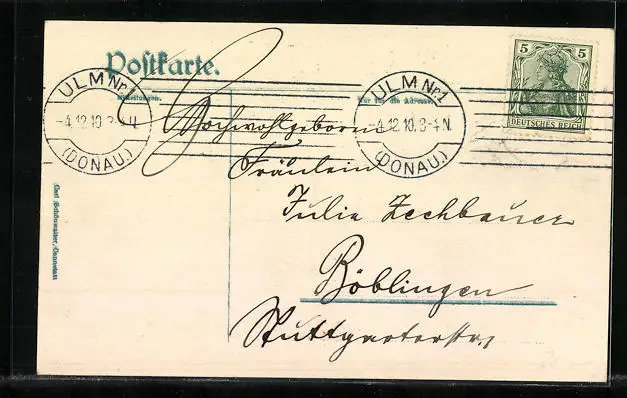 Postkarte.
ULM Nr1
-4.12.10 3-4 N.
(DONAU.)
ULM Nr.1
-4.12.10. 3-4 N.
(DONAU.)
5 5
DEUTSCHES REICH
Mitteilungen.
Nur für die Adresse.
Hochwohlgeboren
Fräulein
Julie Zechbauer
Böblingen
Stuttgarterstr.